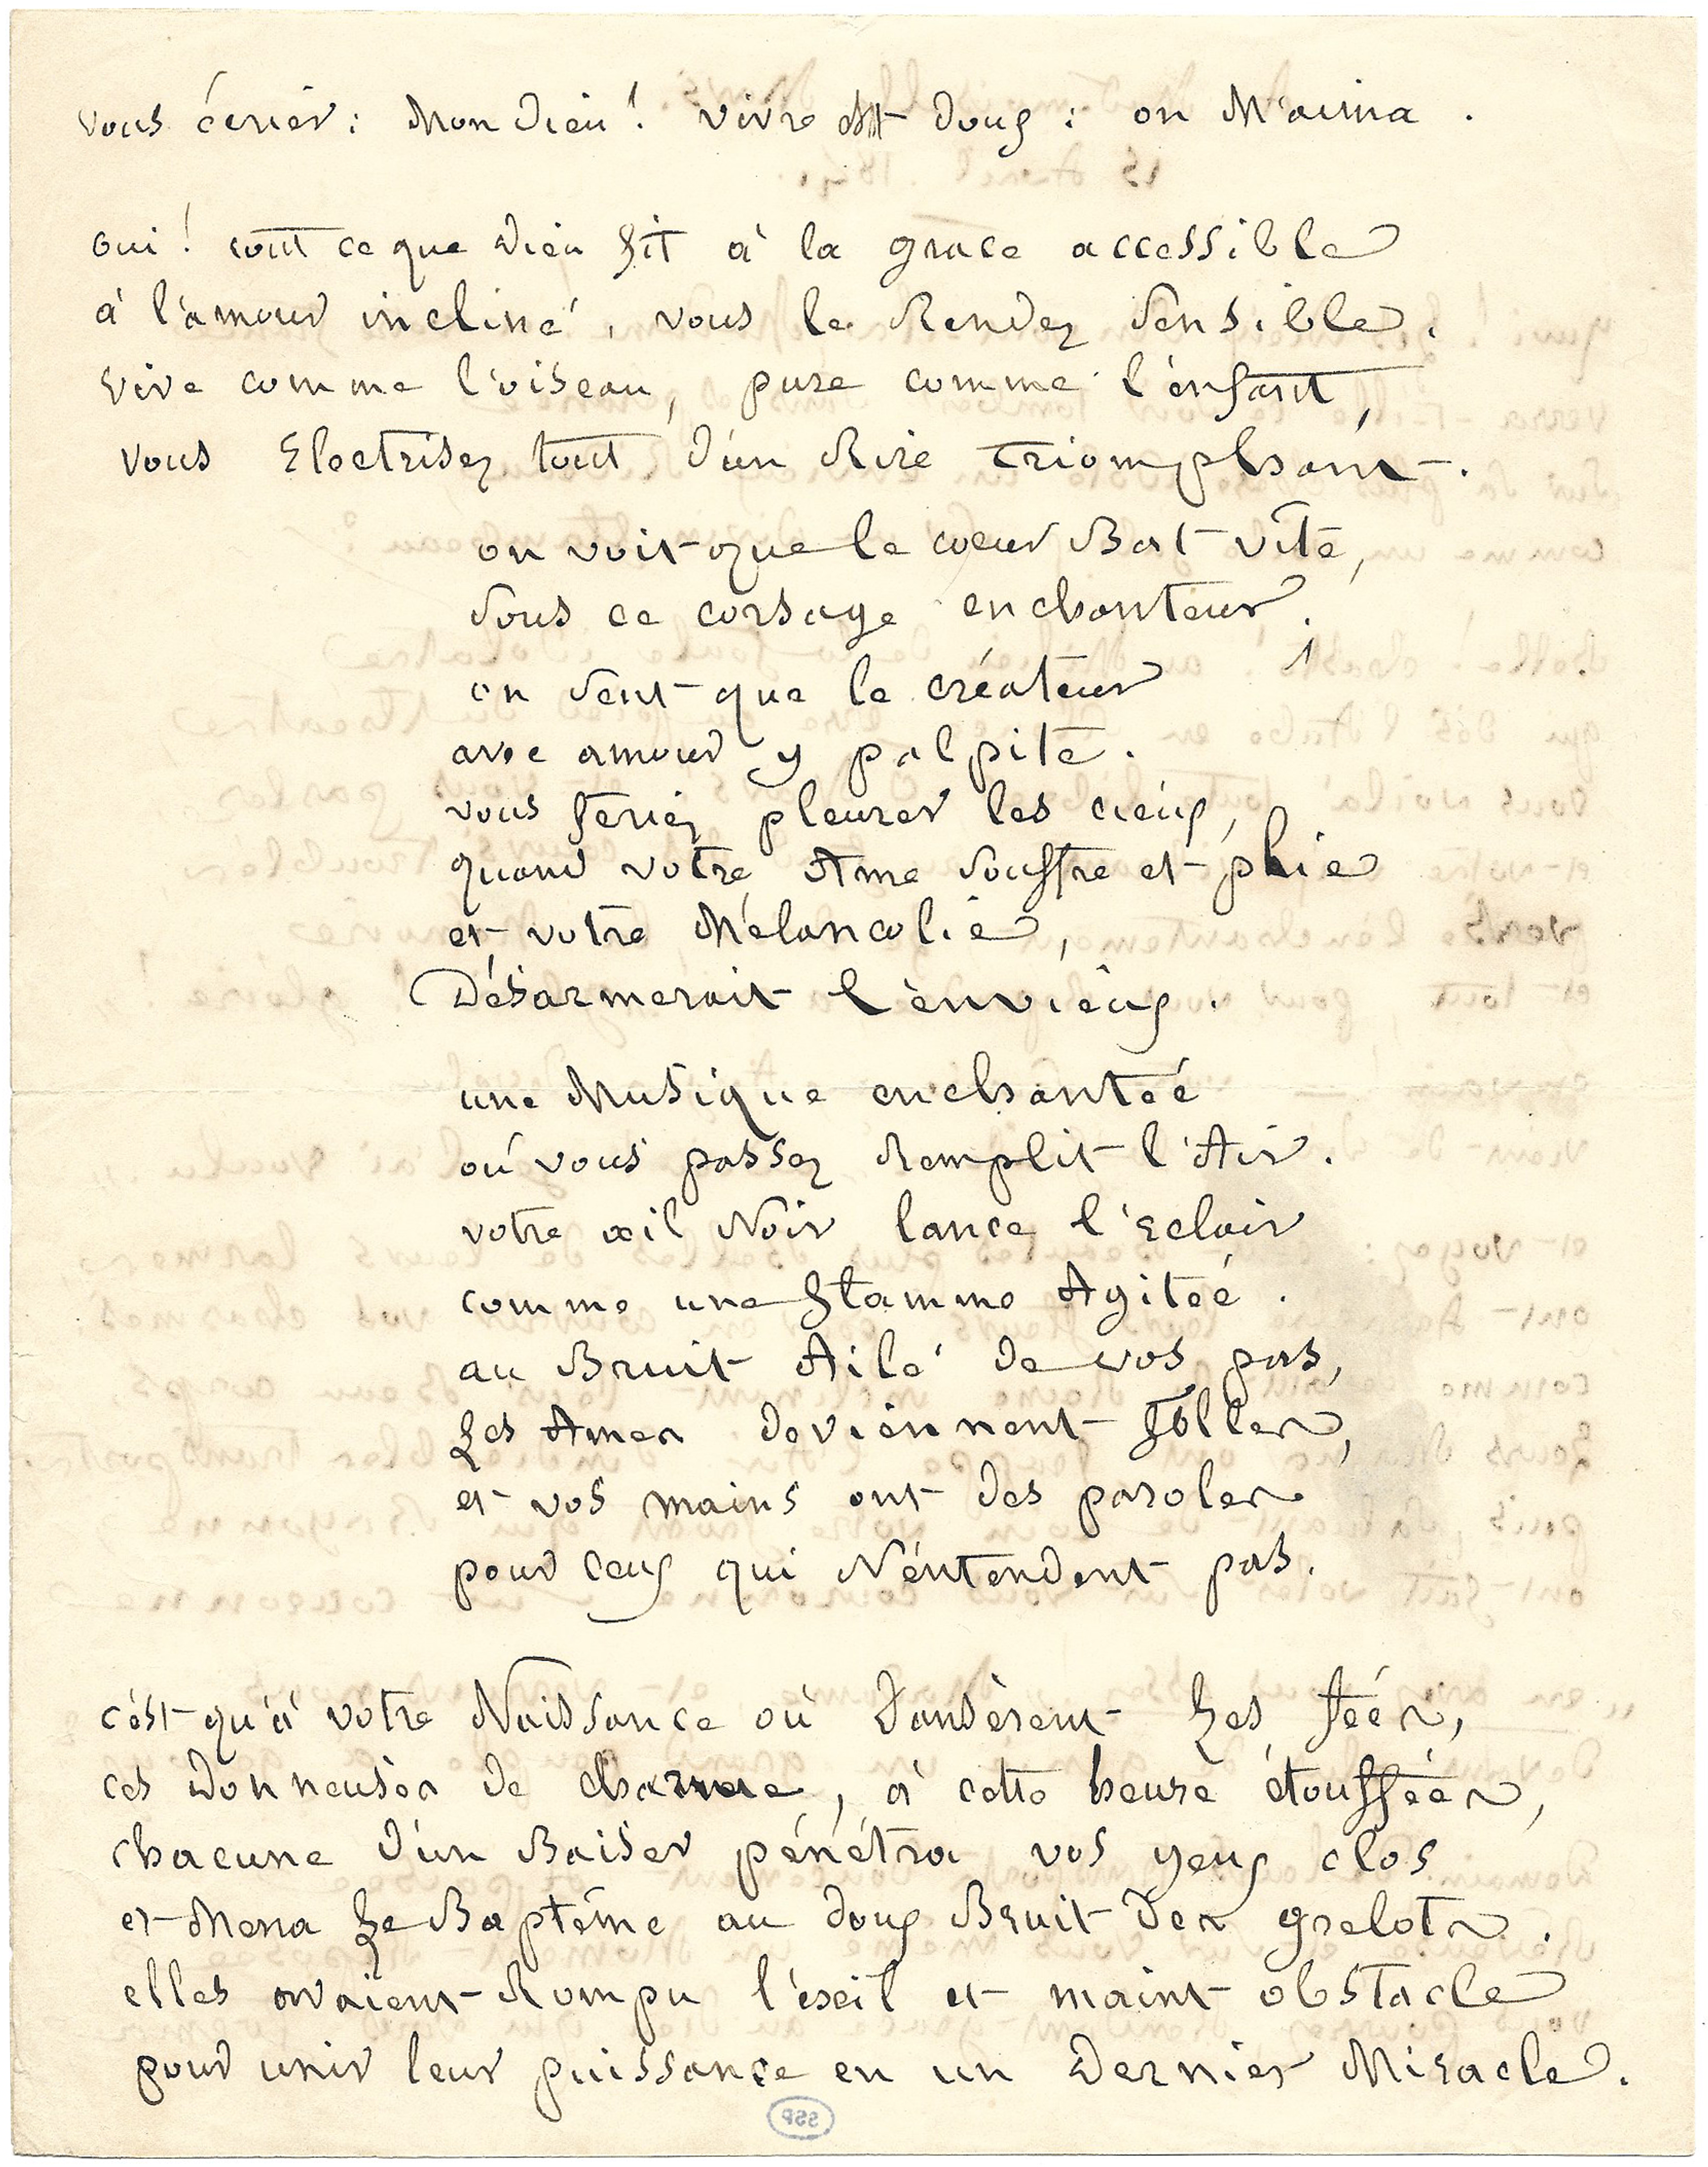 vous écrier : Mon Dieu ! vivre est doux : on M'aima .
oui ! tout ce que Dieu fit à la grace accessible
à l'amour incliné , vous le Rendez Sensible .
vive comme l'oiseau , pure comme l'enfant ,
vous Electrisez tout d'un Rire triomphant .
on voit que le coeur Bat vite ,
Sous ce corsage enchanteur .
on sent que le créateur
avec amour y palpite .
vous feriez pleurer les cieux ,
quand votre Ame souffre et plie
et votre Mélancolie ,
Désarmerait l'envieux .
une Musique enchantée
où vous passez Remplit l'Air .
votre œil Noir lance l'Eclair
comme une flamme Agitée .
au Bruit Ailé de vos pas ,
Les Ames deviennent folles ,
et vos mains ont des paroles
pour ceux qui N'entendent pas .
c'est qu'à votre Naissance où Dansèrent Les fées ,
ces Donneuses de charme , à cette heure étouffées ,
chacune d'un Baiser pénétra vos yeux clos
et Mena Le Baptême au doux Bruit Des grelots .
elles avaient Rompu l'exil et maint obstacle
pour unir leur puissance en un Dernier Miracle .
SSP